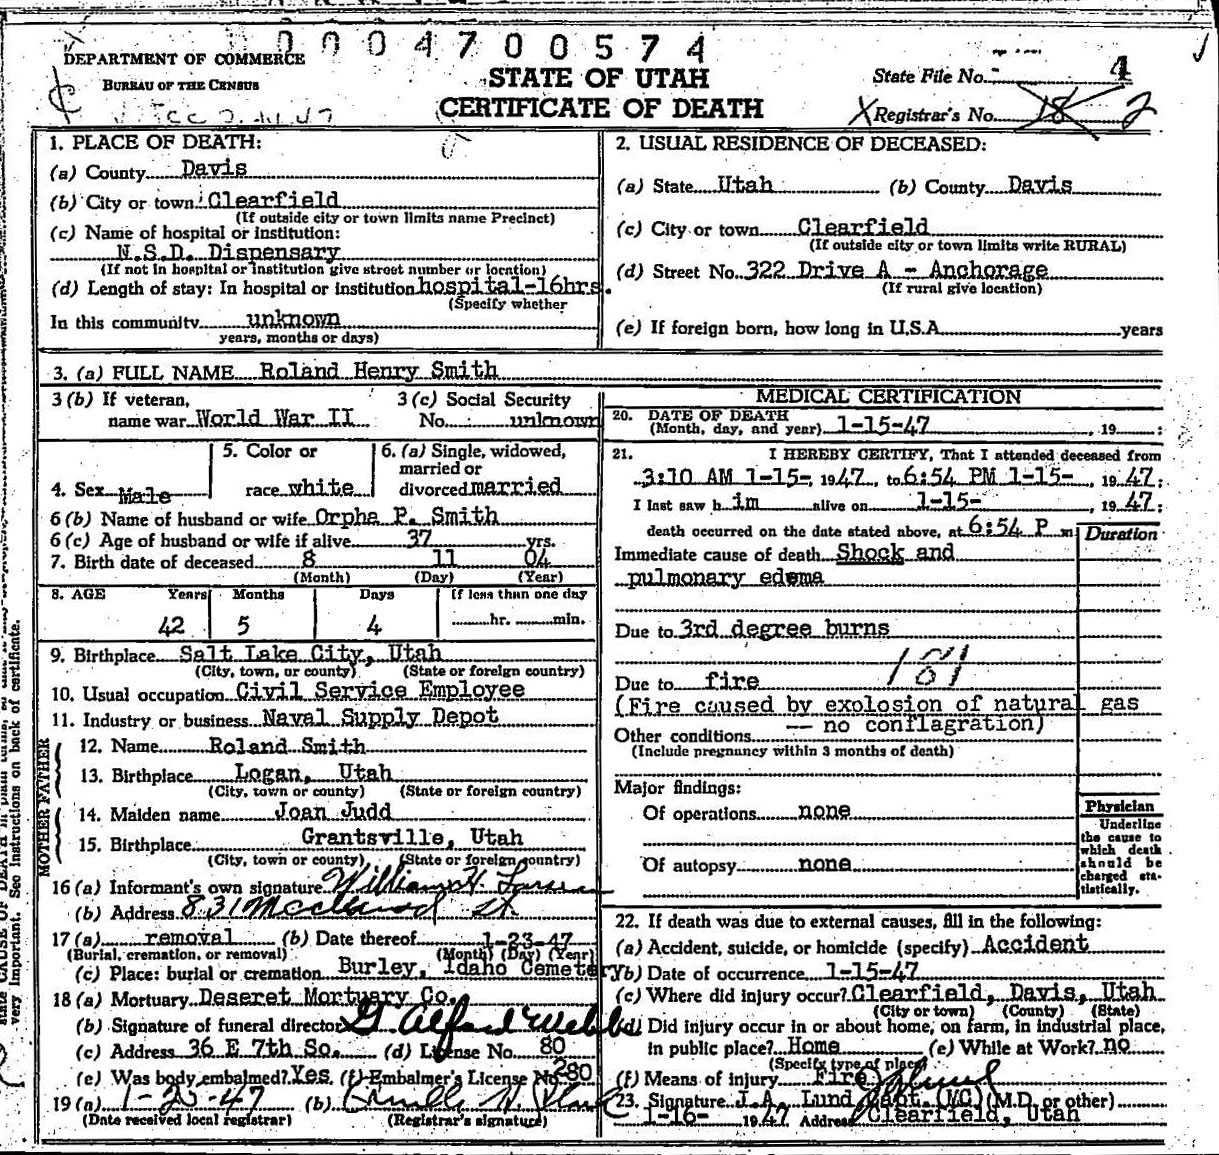 0004700574
DEPARTMENT OF COMMERCE
BUREAU OF THE CENSUS
STATE OF UTAH
CERTIFICATE OF DEATH
State File No. 4
Registrar's No. 18 2
1. PLACE OF DEATH:
(a) County Davis
(b) City or town Clearfield
(If outside city or town limits name Precinct)
(c) Name of hospital or institution:
N.S.D. Dispensary
(If not in hospital or institution give street number or location)
(d) Length of stay: In hospital or institution hospital-16hrs.
(Specify whether
In this community unknown
years, months or days)
2. USUAL RESIDENCE OF DECEASED:
(a) State Utah (b) County Davis
(c) City or town Clearfield
(If outside city or town limits write RURAL)
(d) Street No. 322 Drive A - Anchorage
(If rural give location)
(e) If foreign born, how long in U.S.A. years
3. (a) FULL NAME Roland Henry Smith
3 (b) If veteran, 3 (c) Social Security
name war World War II No. unknown
4. Sex Male
5. Color or
race white
6. (a) Single, widowed,
married or
divorced married
6 (b) Name of husband or wife Orpha P. Smith
6 (c) Age of husband or wife if alive 37 yrs.
7. Birth date of deceased 8 11 04
(Month) (Day) (Year)
8. AGE Years Months Days If less than one day
42 5 4 hr. min.
9. Birthplace Salt Lake City, Utah
(City, town, or county) (State or foreign country)
10. Usual occupation Civil Service Employee
11. Industry or business Naval Supply Depot
FATHER
12. Name Roland Smith
13. Birthplace Logan, Utah
(City, town or county) (State or foreign country)
MOTHER
14. Maiden name Joan Judd
15. Birthplace Grantsville, Utah
(City, town or county) (State or foreign country)
16 (a) Informant's own signature William H.
(b) Address 831 St.
17 (a) removal (b) Date thereof 1-23-47
(Burial, cremation, or removal) (Month) (Day) (Year)
(c) Place: burial or cremation Burley, Idaho Cemetery
18 (a) Mortuary Deseret Mortuary Co.
(b) Signature of funeral director G Alford Webb
(c) Address 36 E 7th So. (d) License No. 80
(e) Was body embalmed? Yes (f) Embalmer's License No. 280
19 (a) 1-23-47 (b)
(Date received local registrar) (Registrar's signature)
MEDICAL CERTIFICATION
20. DATE OF DEATH
(Month, day, and year) 1-15-47, 19 ;
21. I HEREBY CERTIFY, That I attended deceased from
3:10 AM 1-15-, 1947, to 6:54 PM 1-15-, 1947;
I last saw him alive on 1-15-, 1947;
death occurred on the date stated above, at 6:54 P m
Duration
Immediate cause of death Shock and
pulmonary edema
Due to 3rd degree burns
181
Due to fire
(Fire caused by explosion of natural gas
-- no conflagration)
Other conditions
(Include pregnancy within 3 months of death)
Major findings:
Of operations none
Of autopsy none
Physician
Underline
the cause to
which death
should be
charged sta-
tistically.
22. If death was due to external causes, fill in the following:
(a) Accident, suicide, or homicide (specify) Accident
(b) Date of occurrence 1-15-47
(c) Where did injury occur? Clearfield, Davis, Utah
(City or town) (County) (State)
(d) Did injury occur in or about home, on farm, in industrial place,
in public place? Home (e) While at Work? no
(Specify type of place)
(f) Means of injury Fire
23. Signature J.A. Lund Capt. (MC) (M.D. or other)
1-16- 1947 Address Clearfield, Utah
very important. See instructions on back of certificate.